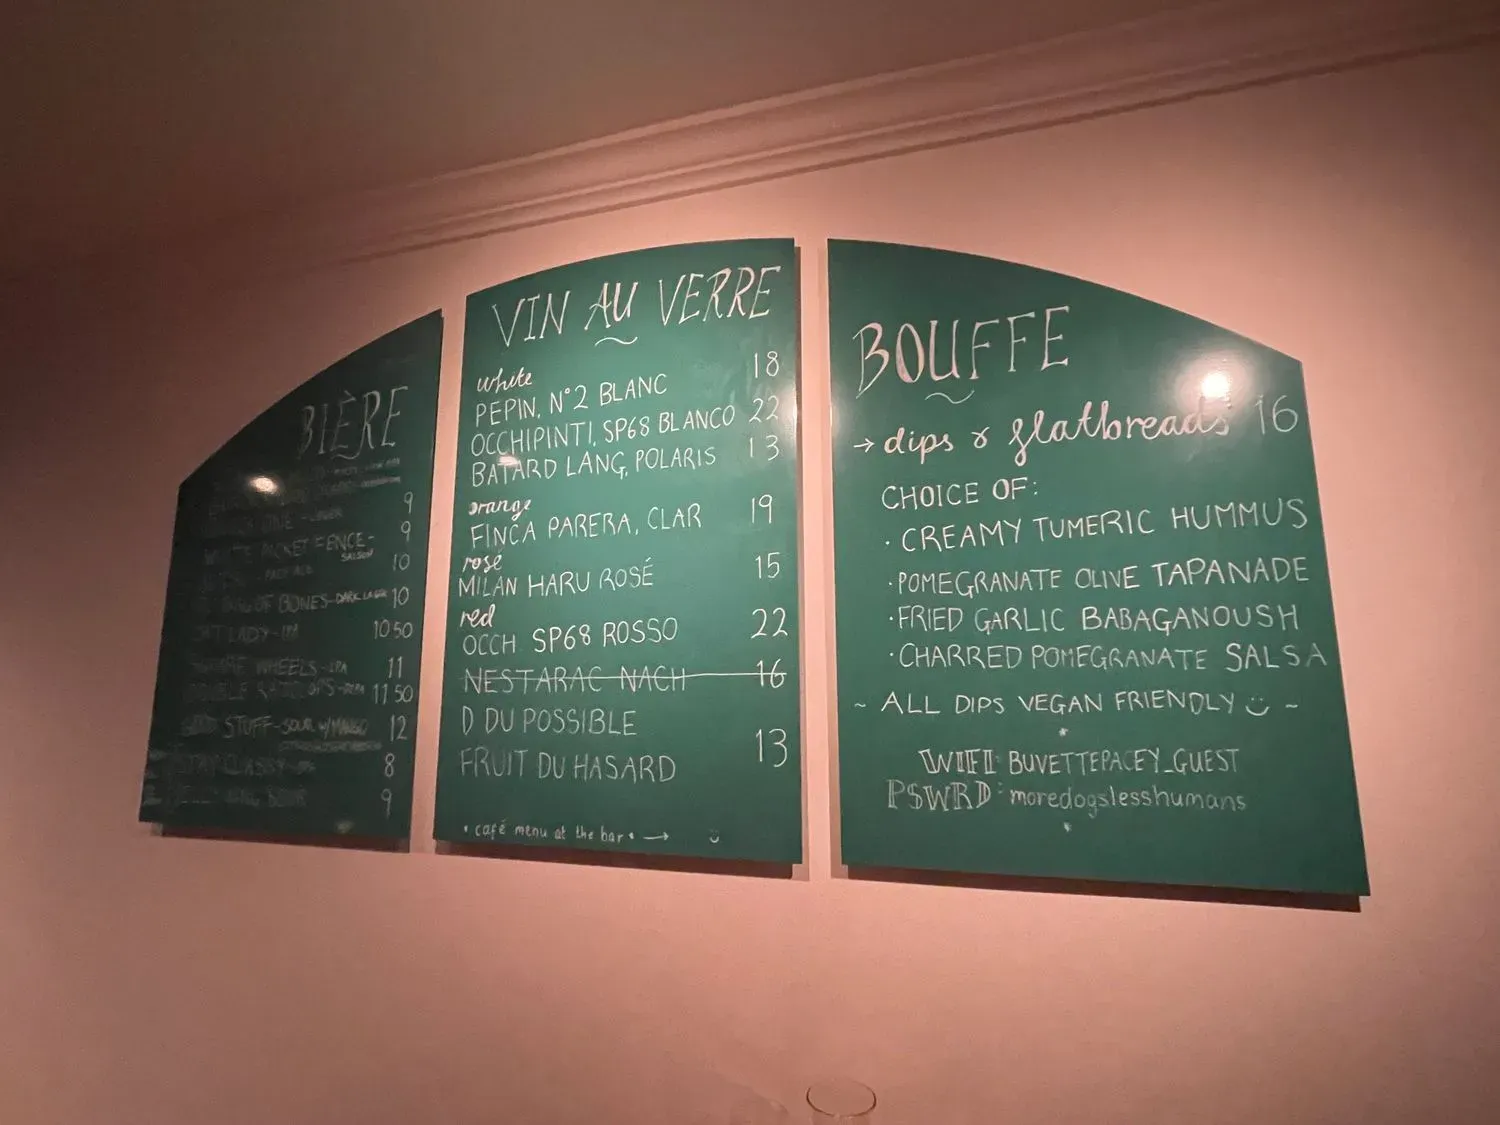 BIÈRE
9
WHITE PICKET FENCE- 9
SAISON
10
OF BONES-DARK LAGER 10
LADY-IPA 10 50
WHEELS-IPA 11
11 50
STUFF-SOUR W/MANGO 12
STAY CLASSY 8
9
VIN AU VERRE
white
PEPIN, N°2 BLANC 18
OCCHIPINTI, SP68 BLANCO 22
BATARD LANG, POLARIS 13
orange
FINCA PARERA, CLAR 19
rosé
MILAN HARU ROSÉ 15
red
OCCH. SP68 ROSSO 22
NESTARAC NACH 16
D DU POSSIBLE
FRUIT DU HASARD 13
• café menu at the bar • →
BOUFFE
→ dips & flatbreads 16
CHOICE OF:
· CREAMY TUMERIC HUMMUS
· POMEGRANATE OLIVE TAPANADE
· FRIED GARLIC BABAGANOUSH
· CHARRED POMEGRANATE SALSA
~ ALL DIPS VEGAN FRIENDLY ~
WIFI: BUVETTEPACEY_GUEST
PSWRD: moredogslesshumans